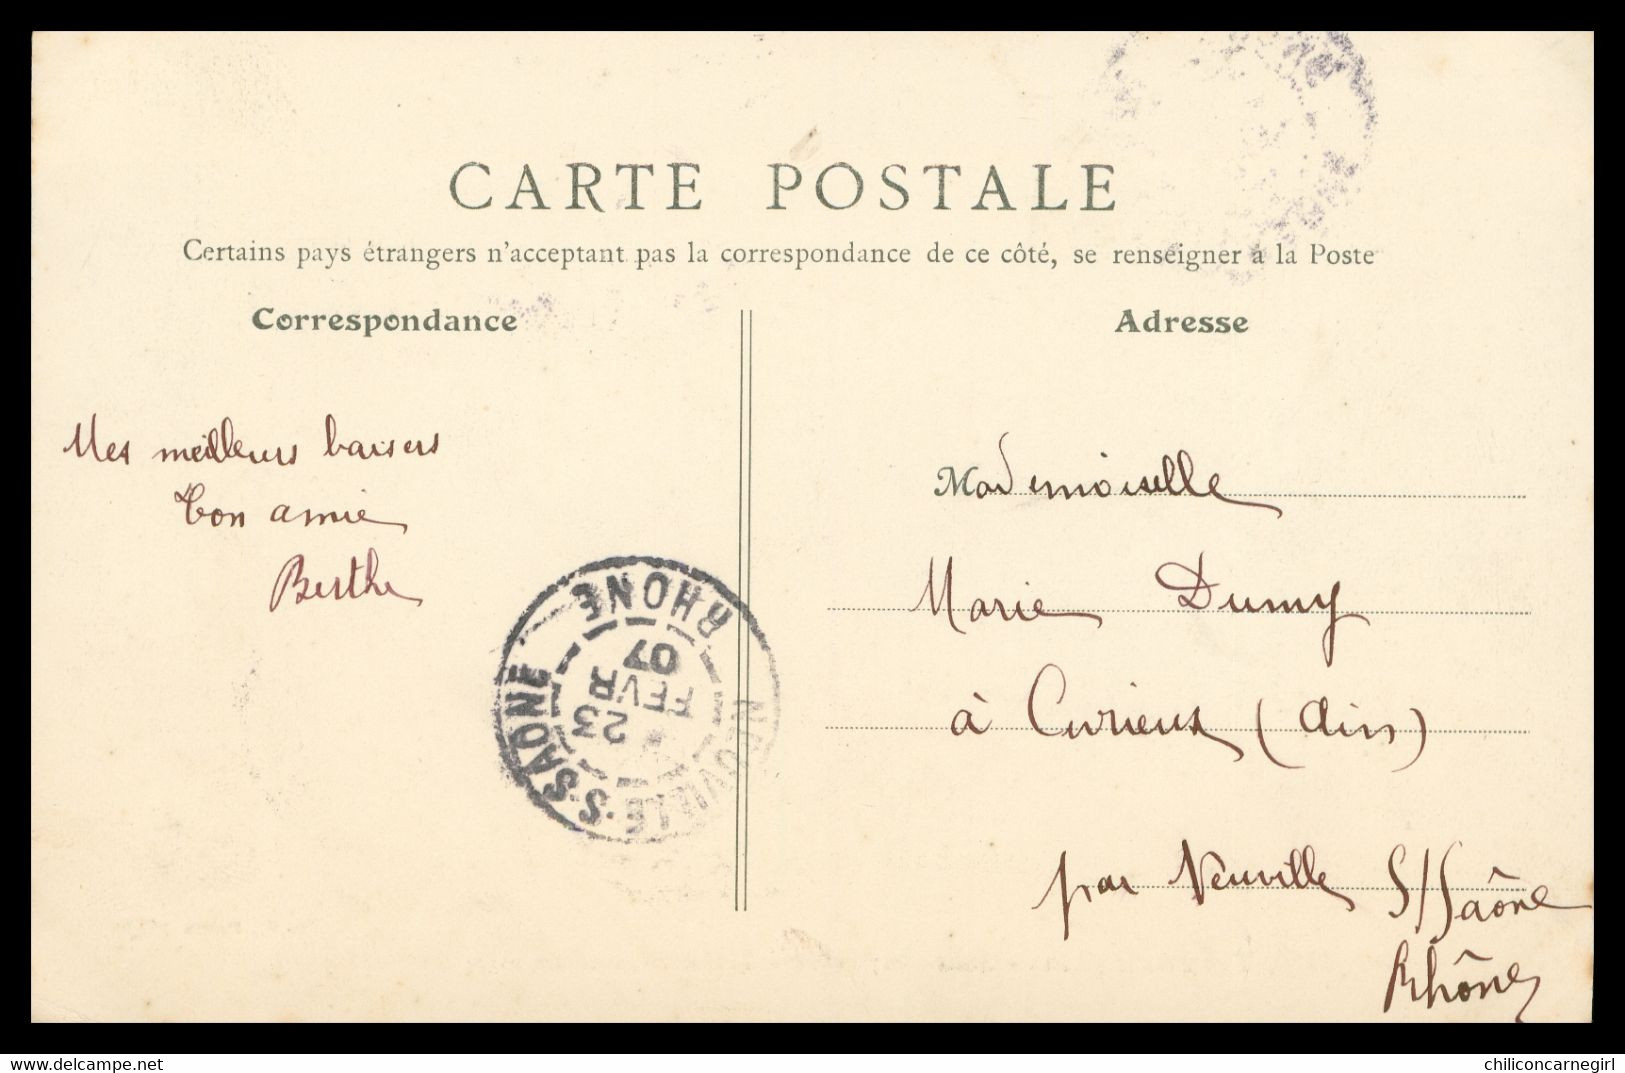 CARTE POSTALE
Certains pays étrangers n'acceptant pas la correspondance de ce côté, se renseigner à la Poste
Correspondance
Adresse
Mes meilleurs baisers
Ton amie
Berthe
Mademoiselle
Marie Dumy
à Civrieux (Ain)
par Neuville S/Saône
Rhône
NEUVILLE-S-SAONE
RHONE
23
FEVR
07
delcampe.net
chiliconcarnegirl